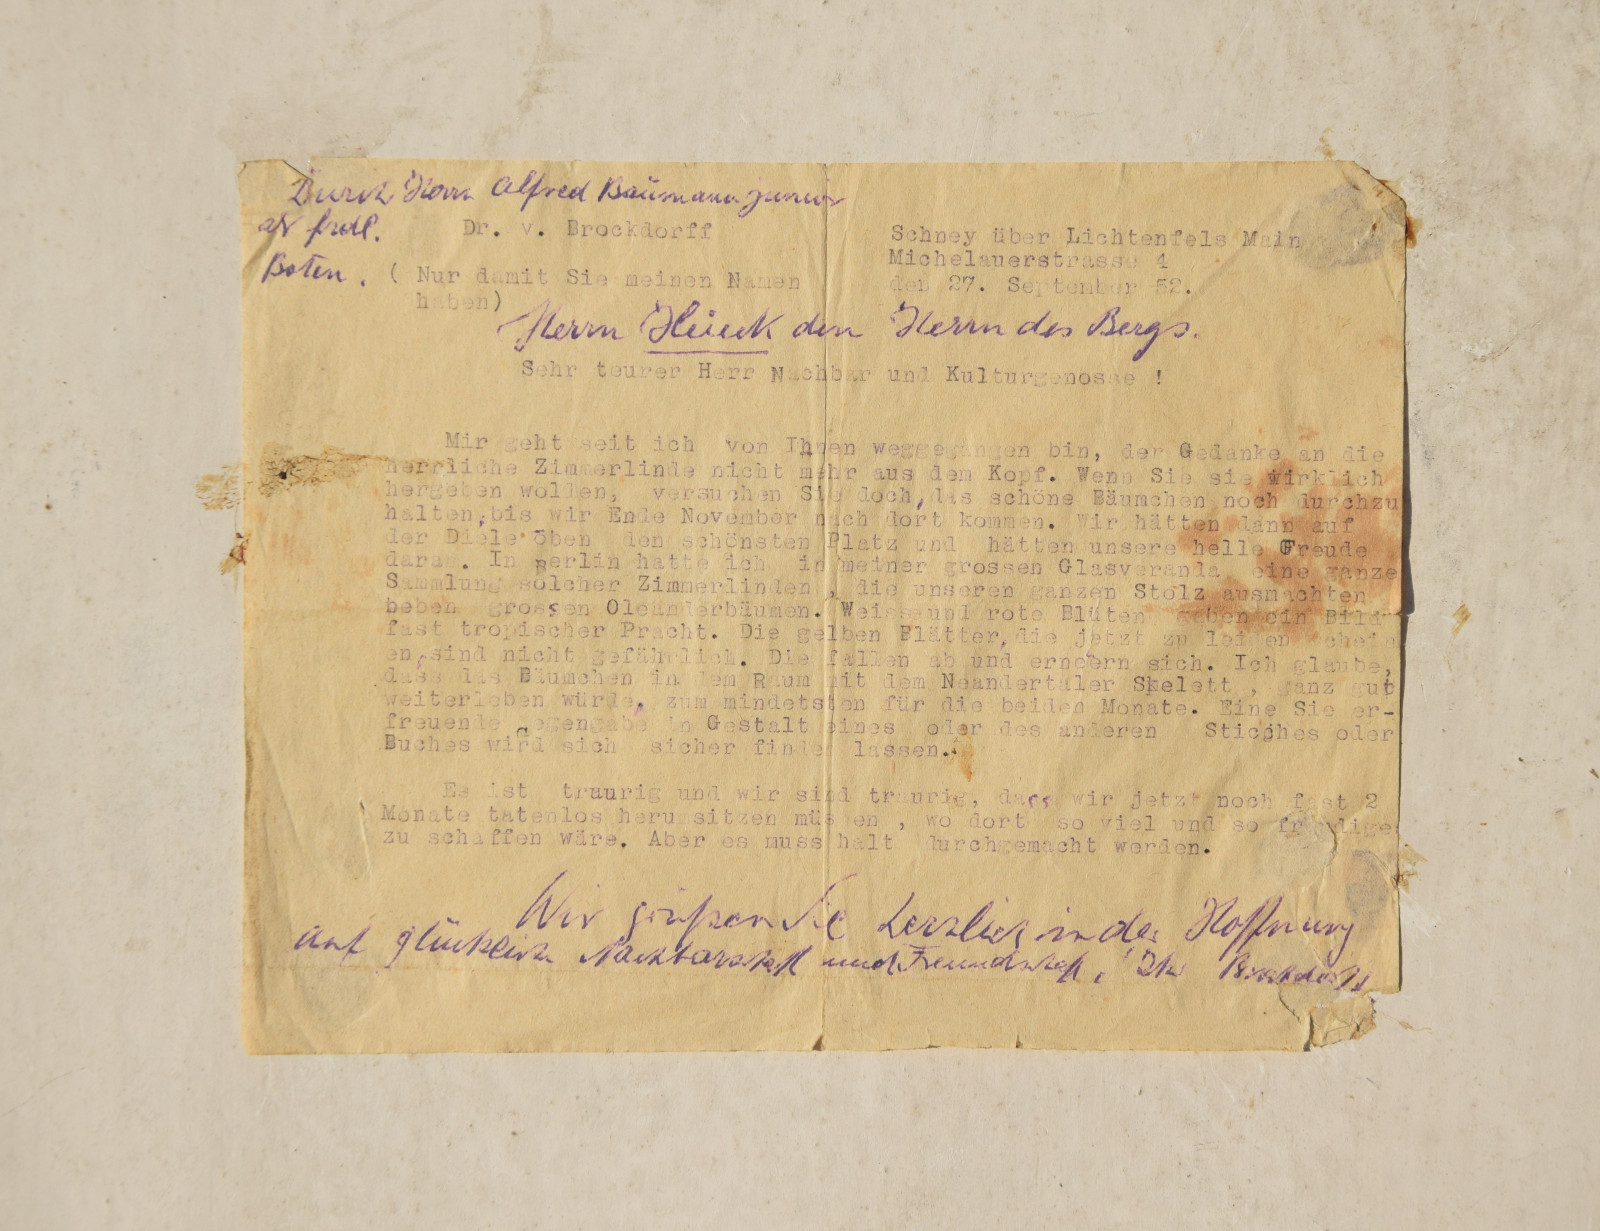 Durch Herrn Alfred Baümann junior
als frdl.
Boten.
Dr. v. Brockdorff
( Nur damit Sie meinen Namen
haben)
Schney über Lichtenfels Main
Michelauerstrasse 4
den 27. September 52.
Herrn Heieck den Herrn des Bergs.
Sehr teurer Herr Nachbar und Kulturgenosse !
Mir geht seit ich von Ihnen weggegangen bin, der Gedanke an die
herrliche Zimmerlinde nicht mehr aus dem Kopf. Wenn Sie sie wirklich
hergeben wollen, versuchen Sie doch, das schöne Bäumchen noch durchzu
halten, bis wir Ende November nach dort kommen. Wir hätten dann auf
der Diele oben den schönsten Platz und hätten unsere helle Freude
daran. In Berlin hatte ich in meiner grossen Glasveranda eine ganze
Sammlung solcher Zimmerlinden , die unseren ganzen Stolz ausmachten
beben grossen Oleanderbäumen. Weisse und rote Blüten gaben ein Bild
fast tropischer Pracht. Die gelben Blätter, die jetzt zu leiden schein
en, sind nicht gefährlich. Die fallen ab und erneern sich. Ich glaube,
dass das Bäumchen in dem Raum mit dem Neandertaler Skelett , ganz gut
weiterleben würde, zum mindetsten für die beiden Monate. Eine Sie er-
freuende Gegengabe in Gestalt eines oder des anderen Stiches oder
Buches wird sich sicher finden lassen.
Es ist traurig und wir sind traurig, dass wir jetzt noch fast 2
Monate tatenlos herumsitzen müssen , wo dort so viel und so freudiges
zu schaffen wäre. Aber es muss halt durchgemacht werden.
Wir grüßen Sie herzlich in der Hoffnung
auf glückliche Nachbarschaft und Freundschaft, Ihr Brockdorff